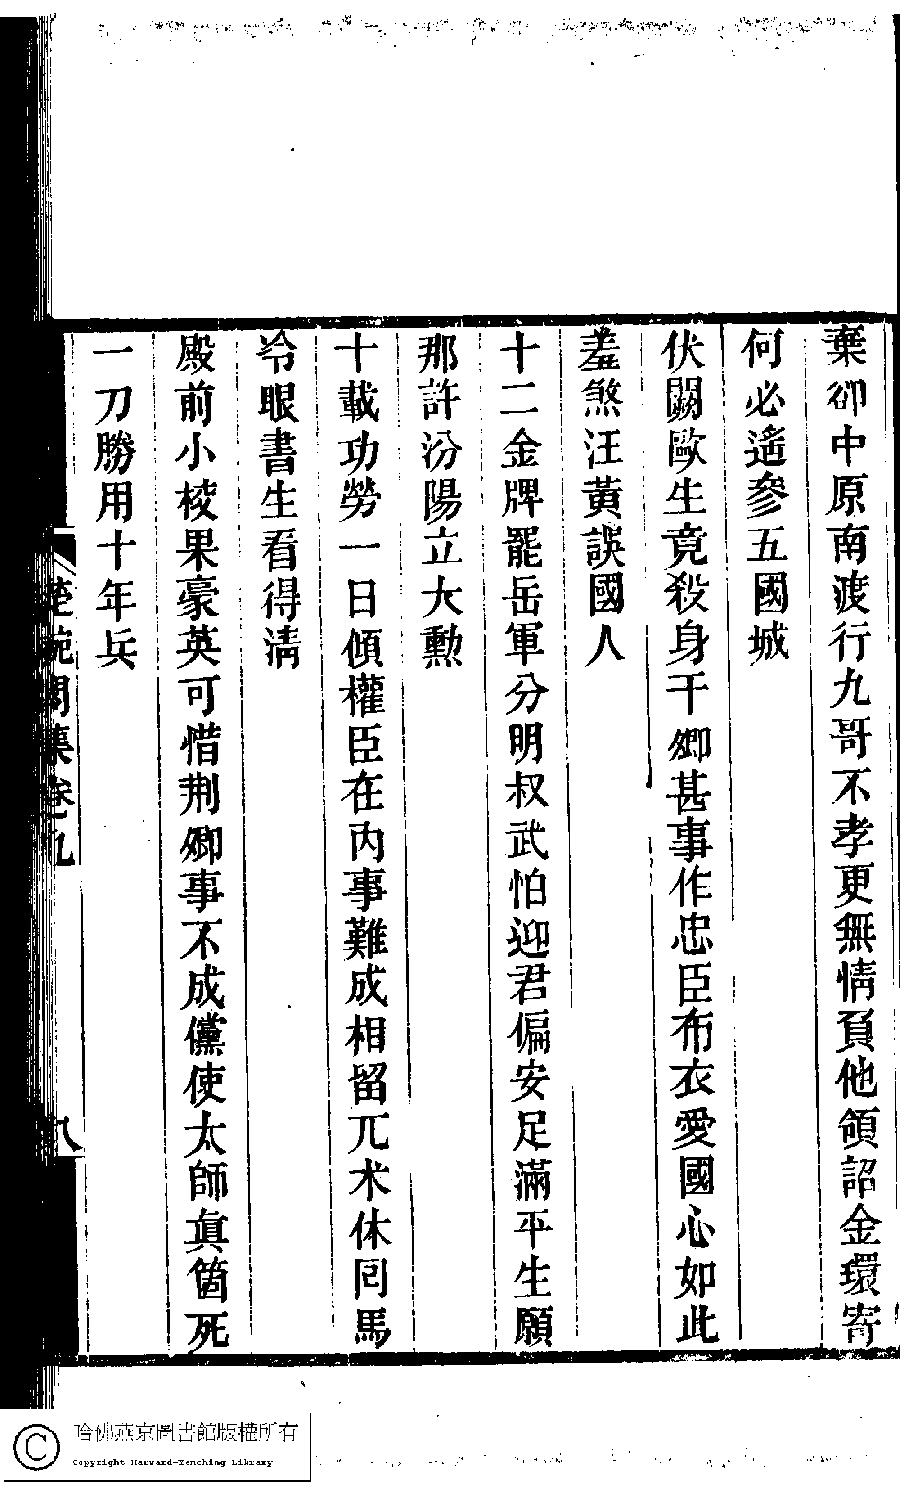 棄卻中原南渡行九哥不孝更無情負他領詔金環寄
何必遙參五國城
伏闕歐生竟殺身干卿甚事作忠臣布衣愛國心如此
羞煞汪黃誤國人
十二金牌罷岳軍分明叔武怕迎君偏安足滿平生願
那許汾陽立大勲
十載功勞一日傾權臣在內事難成相留兀朮休囘馬
冷眼書生看得淸
殿前小校果豪英可惜荆卿事不成儻使太師眞箇死
一刀勝用十年兵
集卷九
八
哈佛燕京圖書館版權所有
Copyright Harvard-Yenching Library